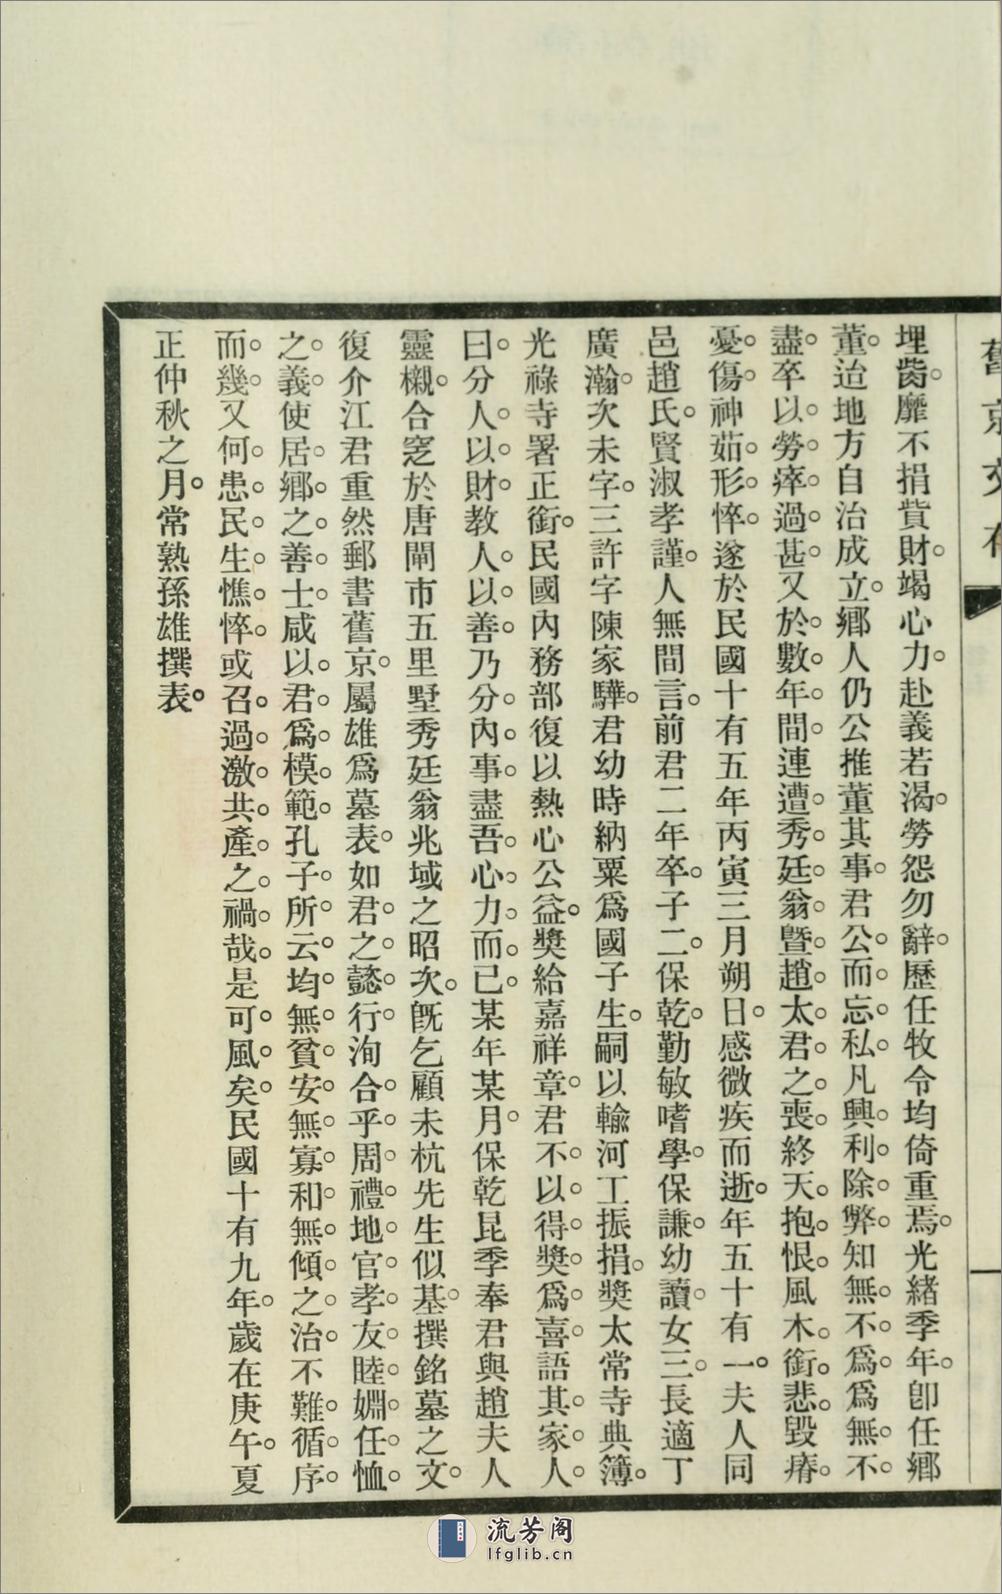 舊京文存
埋胔靡不捐貲財竭心力赴義若渴勞怨勿辭歷任牧令均倚重焉光緒季年卽任鄉
董迨地方自治成立鄉人仍公推董其事君公而忘私凡興利除弊知無不爲爲無不
盡卒以勞瘁過甚又於數年間連遭秀廷翁曁趙太君之喪終天抱恨風木銜悲毀瘠
憂傷神茹形悴遂於民國十有五年丙寅三月朔日感微疾而逝年五十有一夫人同
邑趙氏賢淑孝謹人無間言前君二年卒子二保乾勤敏嗜學保謙幼讀女三長適丁
廣瀚次未字三許字陳家驊君幼時納粟爲國子生嗣以輸河工振捐獎太常寺典簿
光祿寺署正銜民國內務部復以熱心公益獎給嘉祥章君不以得獎爲喜語其家人
曰分人以財教人以善乃分內事盡吾心力而已某年某月保乾昆季奉君與趙夫人
靈櫬合窆於唐閘市五里墅秀廷翁兆域之昭次旣乞顧未杭先生似基撰銘墓之文
復介江君重然郵書舊京屬雄爲墓表如君之懿行洵合乎周禮地官孝友睦婣任恤
之義使居鄉之善士咸以君爲模範孔子所云均無貧安無寡和無傾之治不難循序
而幾又何患民生憔悴或召過激共產之禍哉是可風矣民國十有九年歲在庚午夏
正仲秋之月常熟孫雄撰表
流芳阁
lfglib.cn